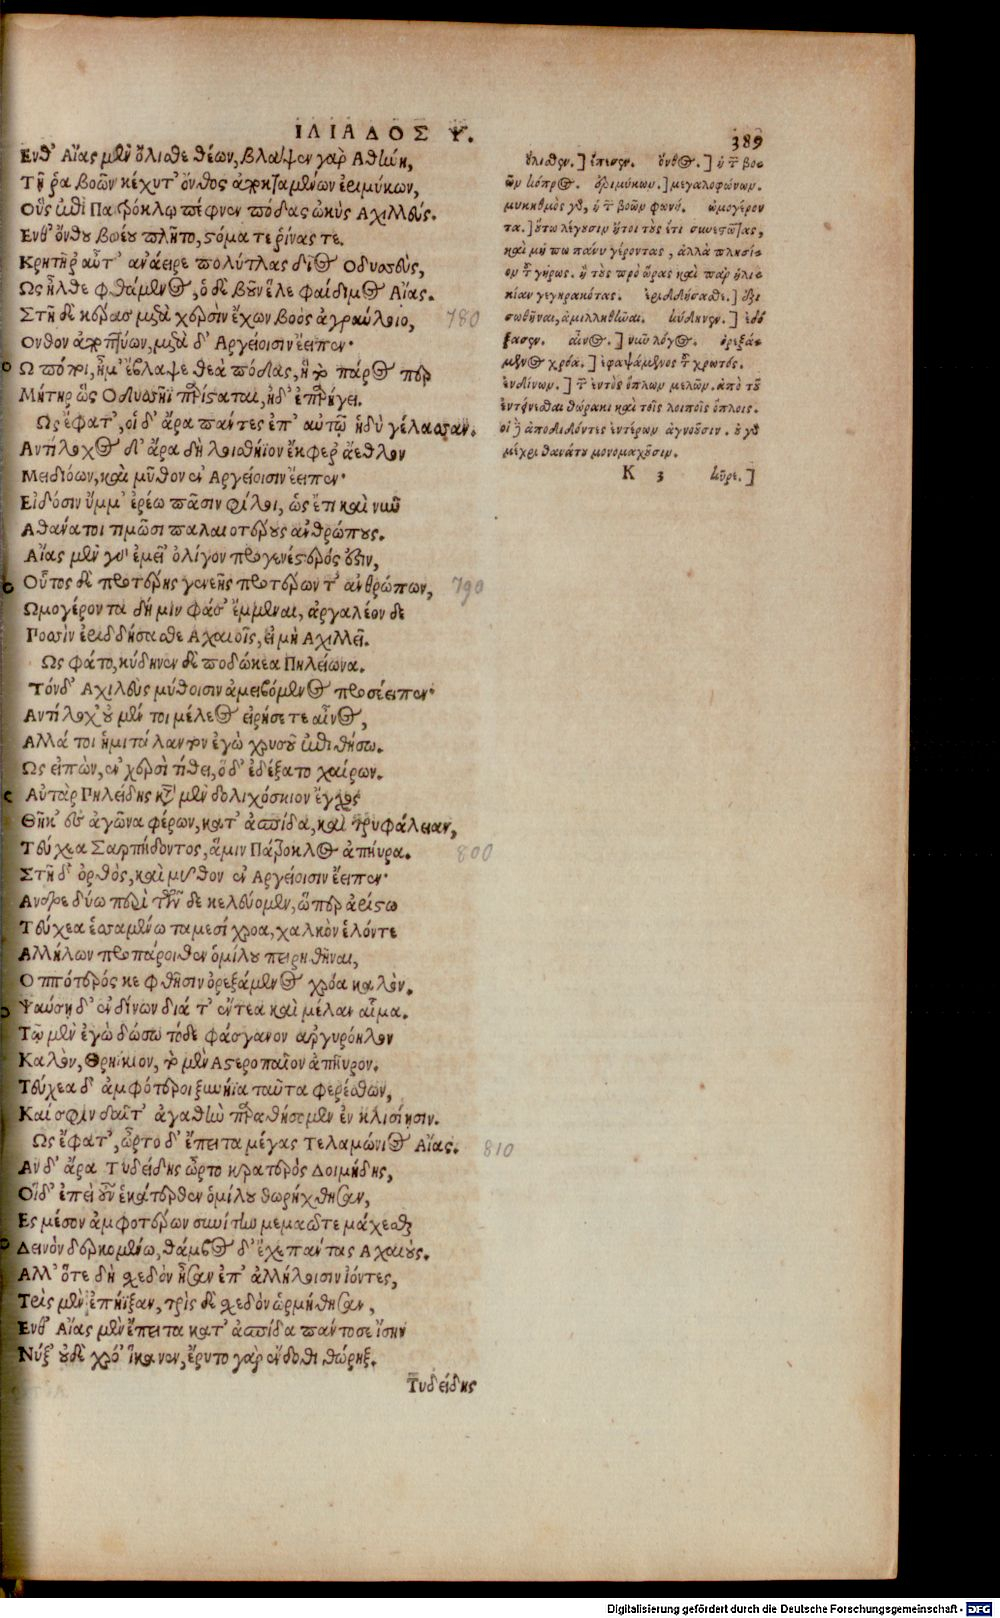 ΙΛΙΑΔΟΣ Ψ.
389
Ενθ' Αἴας μὲν ὄλισθε θέων, βλάψεν γὰρ Αθήνη,
Τῇ ῥα βοῶν κέχυτ' ὄνθος ἀποκταμένων ἐριμύκων,
Οὓς ἐπὶ Πατρόκλῳ πέφνεν πόδας ὠκὺς Αχιλλεύς.
Ενθ' ὄνθου βοέου πλῆτο, στόμα τε ῥίνας τε.
Κρητῆρ' αὖτ' ἀνάειρε πολύτλας δῖος Οδυσσεὺς,
Ως ἦλθε φθάμενος, ὁ δὲ βοῦν ἕλε φαίδιμος Αἴας.
Στῆ δὲ κέρας μετὰ χερσὶν ἔχων βοὸς ἀγραύλοιο,
780
Ονθον ἀποπτύων, μετὰ δ' Αργείοισιν ἔειπεν·
Ω πόποι, ἦ μ' ἔβλαψε θεὰ πόδας, ἣ τὸ πάρος περ
Μήτηρ ὣς Οδυσῆϊ παρίσταται, ἠδ' ἐπαρήγει.
Ως ἔφατ', οἱ δ' ἄρα πάντες ἐπ' αὐτῷ ἡδὺ γέλασσαν.
Αντίλοχος δ' ἄρα δὴ λοισθήϊον ἔκφερ' ἄεθλον
Μειδιόων, καὶ μῦθον ἐν Αργείοισιν ἔειπεν·
Εἰδόσιν ὔμμ' ἐρέω πᾶσιν φίλοι, ὡς ἔτι καὶ νῦν
Αθάνατοι τιμῶσι παλαιοτέρους ἀνθρώπους.
Αἴας μὲν γὰρ ἐμεῖ' ὀλίγον προγενέστερός ἐστιν,
Οὗτος δὲ προτέρης γενεῆς προτέρων τ' ἀνθρώπων,
790
Ωμογέροντα δή μιν φάσ' ἔμμεναι, ἀργαλέον δε
Ποσσὶν ἐριδδήσασθε Αχαιοῖς, εἰ μὴ Αχιλλεῖ.
Ως φάτο, κύδηνεν δὲ ποδώκεα Πηλείωνα.
Τόνδ' Αχιλεὺς μύθοισιν ἀμειβόμενος προσέειπεν·
Αντίλοχ' οὐ μέν τοι μέλεος εἰρήσετε αἶνος,
Αλλά τοι ἡμιτάλαντον ἐγὼ χρυσοῦ ἐπιθήσω.
Ως εἰπὼν, ἐν χερσὶ τίθει, ὁ δ' ἐδέξατο χαίρων.
Αὐτὰρ Πηλείδης κατὰ μὲν δολιχόσκιον ἔγχος
Θῆκ' ἐς ἀγῶνα φέρων, κατ' ἀσπίδα, καὶ τρυφάλειαν,
Τεύχεα Σαρπήδοντος, ἅμιν Πάτροκλος ἀπηύρα.
800
Στῆ δ' ὀρθὸς, καὶ μῦθον ἐν Αργείοισιν ἔειπεν·
Ανδρε δύω περὶ τῶν δε κελεύομεν, ὥπερ ἀρίστω
Τεύχεα ἑσσαμένω ταμεσίχροα, χαλκὸν ἑλόντε
Αλλήλων προπάροιθεν ὁμίλου πειρηθῆναι,
Οππότερός κε φθῇσιν ὀρεξάμενος χρόα καλὸν.
Ψαύσῃ δ' ἐνδίνων διά τ' ἔντεα καὶ μέλαν αἷμα.
Τῷ μὲν ἐγὼ δώσω τόδε φάσγανον ἀργυρόηλον
Καλὸν, Θρηίκιον, τὸ μὲν Αστεροπαῖον ἀπηύρον.
Τεύχεα δ' ἀμφότεροι ξυνήϊα ταῦτα φερέσθων,
Καί σφιν δαῖτ' ἀγαθὴν παραθήσομεν ἐν κλισίῃσιν.
Ως ἔφατ', ὦρτο δ' ἔπειτα μέγας Τελαμώνιος Αἴας.
810
Αν δ' ἄρα Τυδείδης ὦρτο κρατερὸς Διομήδης,
Οἳ δ' ἐπεὶ οὖν ἑκάτερθεν ὁμίλου θωρήχθησαν,
Ες μέσον ἀμφοτέρων συνίτην μεμαῶτε μάχεσθαι
Δεινὸν δερκομένω, θάμβος δ' ἔχε πάντας Αχαιούς.
Αλλ' ὅτε δὴ σχεδὸν ἦσαν ἐπ' ἀλλήλοισιν ἰόντες,
Τρὶς μὲν ἐπήϊξαν, τρὶς δὲ σχεδὸν ὡρμήθησαν,
Ενθ' Αἴας μὲν ἔπειτα κατ' ἀσπίδα πάντοσε ἴσην
Νύξ' οὐδὲ χρό' ἵκανεν, ἔρυτο γὰρ ἔνδοθι θώρηξ.
Τυδείδης
ὄλισθεν.] ἔπεσεν. ὄνθος.] ἡ τῶν βο-
ῶν κόπρος. ἐριμύκων.] μεγαλοφώνων.
μυκηθμὸς γὰρ, ἡ τῶν βοῶν φωνή. ὠμογέρον
τα.] οὕτω λέγουσιν ἤτοι τοὺς ἔτι συνεστῶτας,
καὶ μή πω πάνυ γέροντας, ἀλλὰ πλησί-
ον τοῦ γήρως. ἢ τοὺς πρὸ ὥρας καὶ παρ' ἡλι-
κίαν γεγηρακότας. ἐριδδήσασθε.] ἐρι-
σωθῆναι, ἁμιλληθῆναι. κύδηνεν.] ἐδό
ξασεν. αἶνος.] νῦν λόγος. ὀρεξά-
μενος χρόα.] ἐφαψάμενος τοῦ χρωτός.
ἐνδίνων.] τῶν ἐντὸς ὅπλων μελῶν. ἀπὸ τοῦ
ἐντύνεσθαι θώρακι καὶ τοῖς λοιποῖς ὅπλοις.
οἱ δὲ ἀποδιδόντες ἐντέρων ἀγνοοῦσιν. οὐ γὰρ
μέχρι θανάτου μονομαχοῦσιν.
Κ 3 κῦρε.]
Digitalisierung gefördert durch die Deutsche Forschungsgemeinschaft - DFG